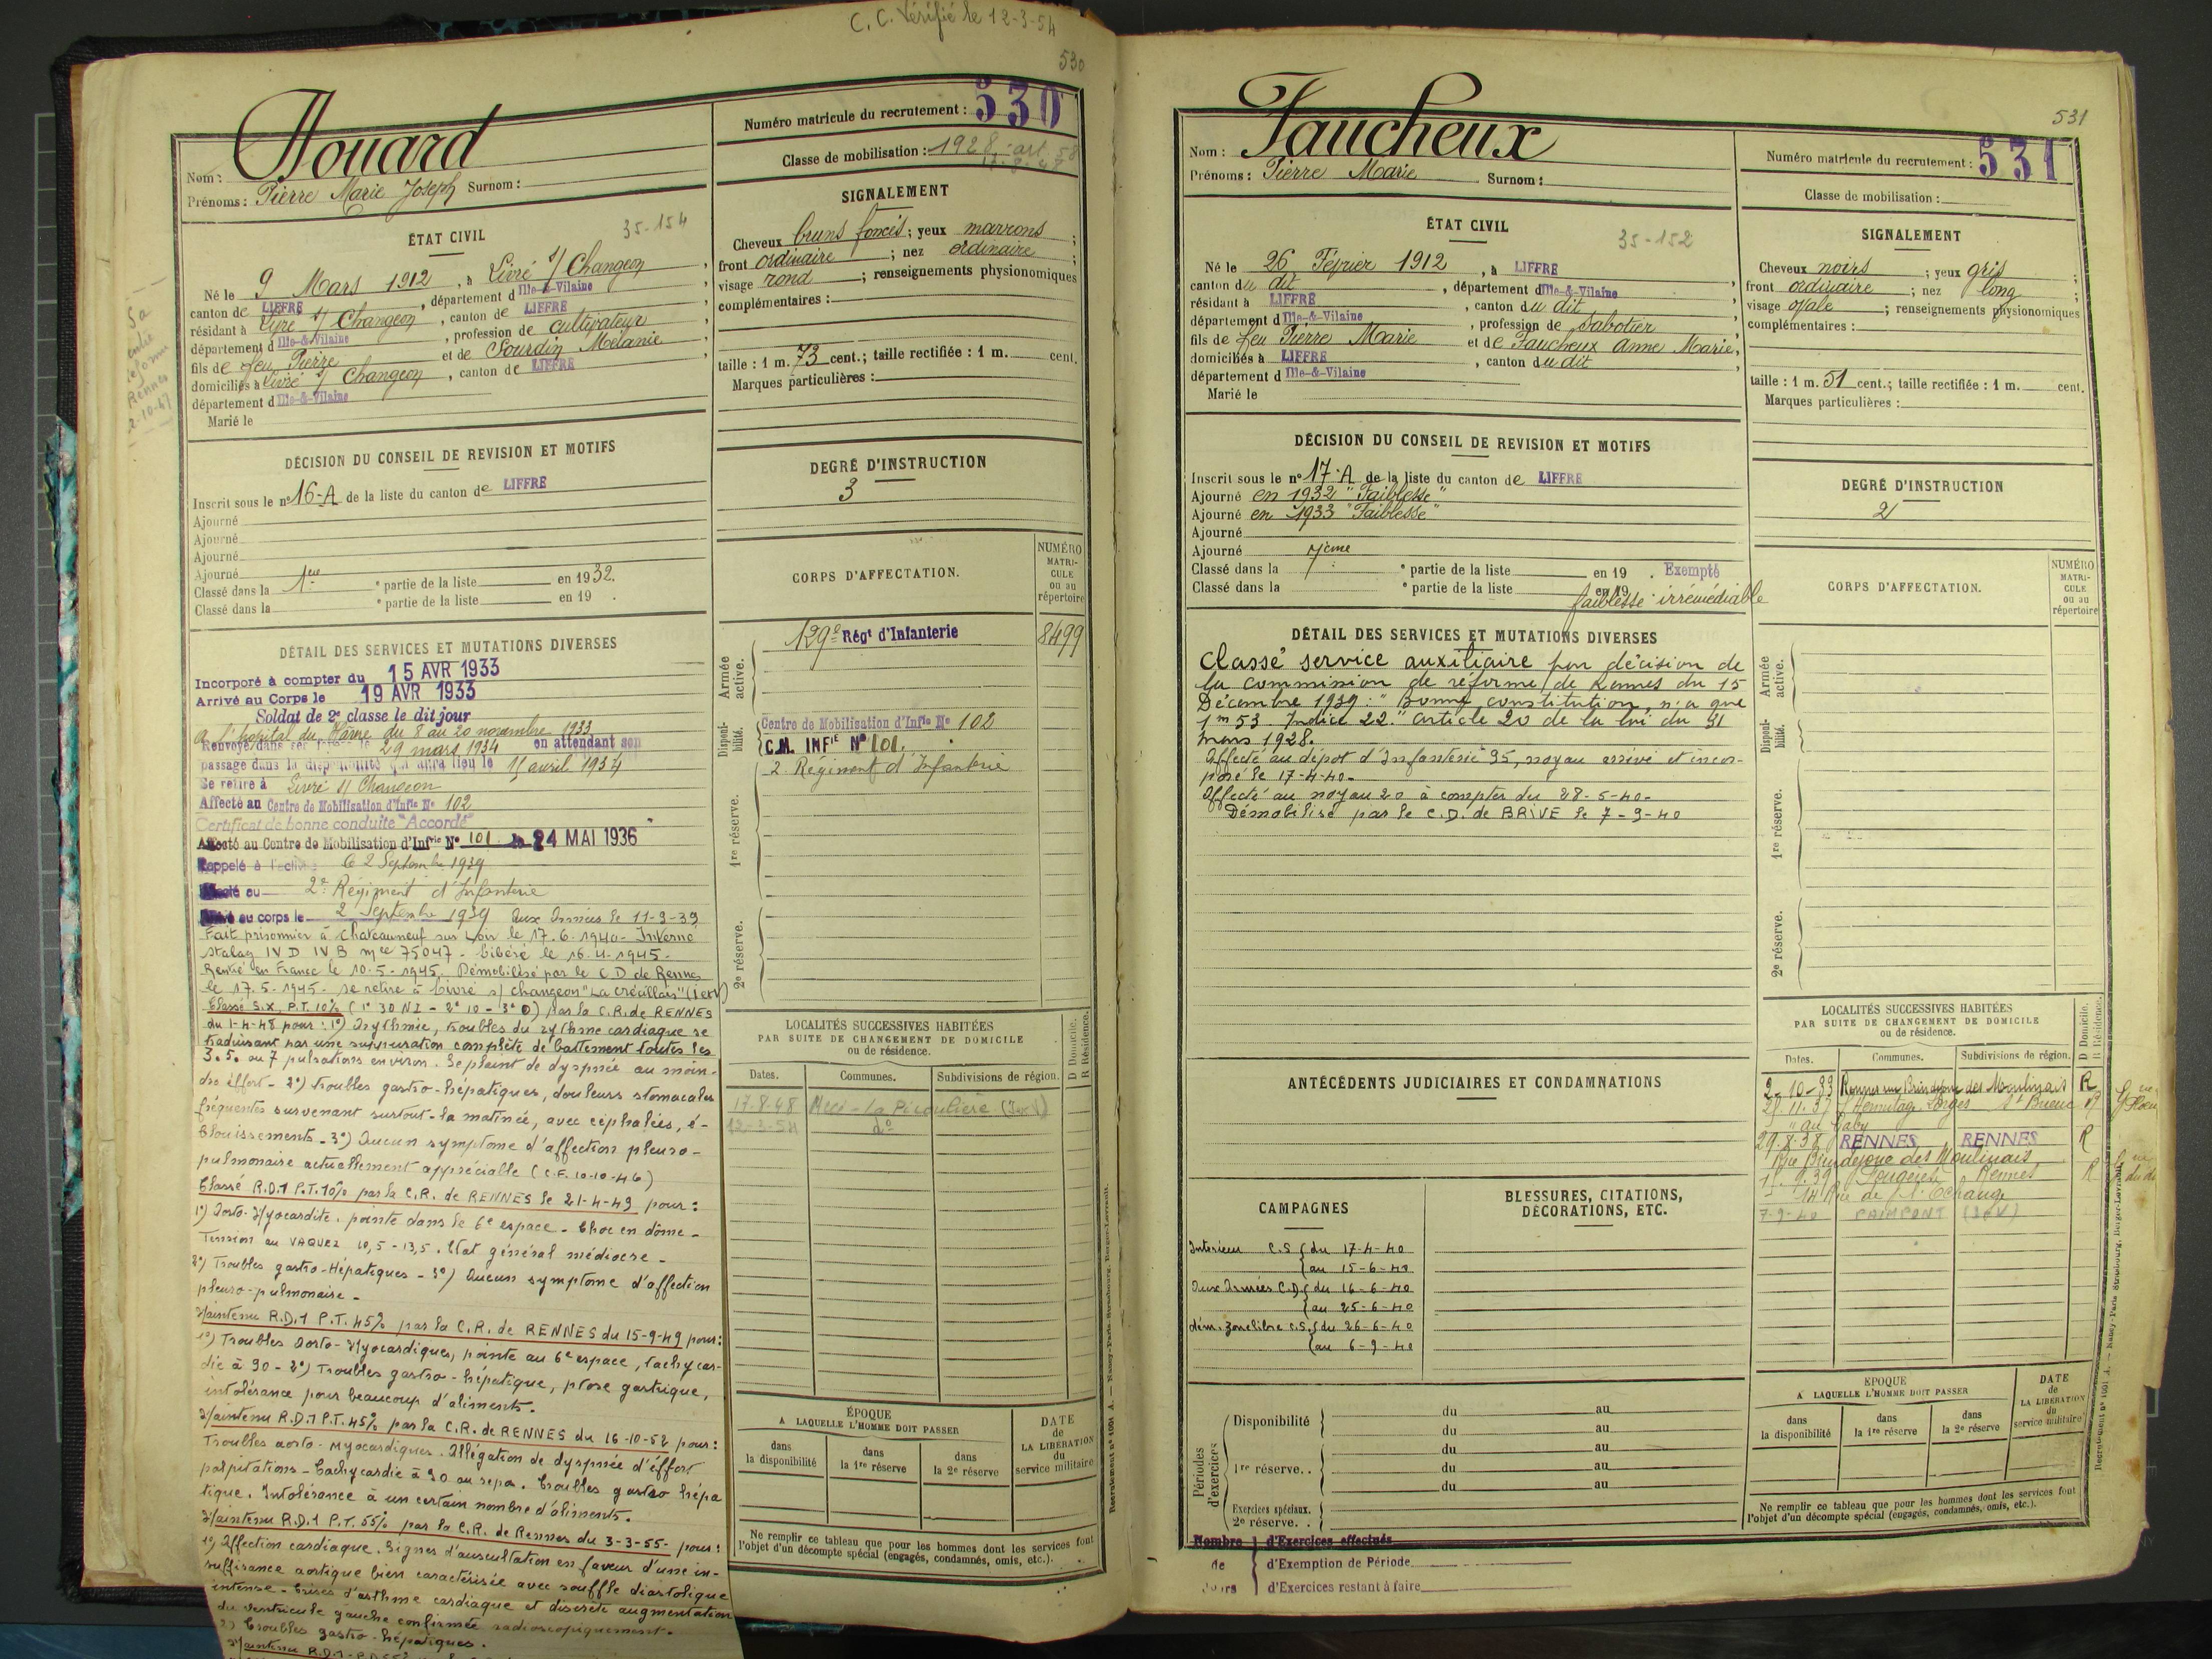 C. C. Vérifié le 12-3-54
530
Nom : Houard
Prénoms : Pierre Marie Joseph Surnom :
Numéro matricule du recrutement : 530
Classe de mobilisation : 1928 art. 58
ÉTAT CIVIL
35-154
Né le 9 Mars 1912, à Livré s/ Changeon,
canton de LIFFRE, département d Ille-&-Vilaine,
résidant à Livré s/ Changeon, canton de LIFFRE
département d Ille-&-Vilaine, profession de cultivateur,
fils de feu Pierre et de Sourdin Mélanie,
domiciliés à Livré s/ Changeon, canton de LIFFRE
département d Ille-&-Vilaine
Marié le
SIGNALEMENT
Cheveux bruns foncés ; yeux marrons ;
front ordinaire ; nez ordinaire ;
visage rond ; renseignements physionomiques
complémentaires :
taille : 1 m. 73 cent.; taille rectifiée : 1 m. cent.
Marques particulières :
DÉCISION DU CONSEIL DE REVISION ET MOTIFS
Inscrit sous le n° 16-A de la liste du canton de LIFFRE
Ajourné
Ajourné
Ajourné
Ajourné
Classé dans la 1ère partie de la liste en 1932.
Classé dans la e partie de la liste en 19 .
DEGRÉ D'INSTRUCTION
3
DÉTAIL DES SERVICES ET MUTATIONS DIVERSES
Incorporé à compter du 15 AVR 1933
Arrivé au Corps le 19 AVR 1933
Soldat de 2e classe le dit jour
A l'hôpital du Havre du 8 au 20 novembre 1933
Renvoyé dans ses foyers le 29 mars 1934 en attendant son
passage dans la disponibilité qui aura lieu le 15 avril 1934
Se retire à Livré s/ Changeon
Affecté au Centre de Mobilisation d'Infie N° 102
Certificat de bonne conduite "Accordé"
Affecté au Centre de Mobilisation d'Infrie N° 101 le 24 MAI 1936
Rappelé à l'activité le 2 Septembre 1939
Affecté au 2e Régiment d'Infanterie
Arrivé au corps le 2 Septembre 1939 Aux Armées le 11-9-39
Fait prisonnier à Chateauneuf sur Loir le 17.6.1940 - Interné
Stalag IV D IV B mle 75047 - Libéré le 16.4.1945 -
Rentré en France le 10-5-1945. Démobilisé par le C D de Rennes
le 17.5.1945 - se retire à Livré s/ Changeon "La Crécillais" (I et V)
Classé S.X. P.T. 10% (1° 30 NI - 2° 10 - 3° 0) par la C.R. de RENNES
du 1-4-48 pour : 1°) Arythmie, troubles du rythme cardiaque se
traduisant par une suppuration complète de battement toutes les
3. 5. ou 7 pulsations environ. Se plaint de dyspnée au moin-
dre effort - 2°) Troubles gastro-hépatiques, douleurs stomacales
fréquentes survenant surtout la matinée, avec céphalées, é-
blouissements - 3°) Aucun symptome d'affection pleuro-
pulmonaire actuellement appréciable (C.E. 10-10-46)
Classé R.D.1 P.T. 10% par la C.R. de RENNES le 21-4-49 pour :
1°) Aorto-Myocardite, pointe dans le 6e espace - Choc en dôme -
Tension au VAQUEZ 10,5 - 13,5. Etat général médiocre -
2°) Troubles gastro-Hépatiques - 3°) Aucun symptome d'affection
pleuro-pulmonaire -
Maintenu R.D.1 P.T. 45% par la C.R. de RENNES du 15-9-49 pour :
1°) Troubles Aorto-Myocardiques, pointe au 6e espace, tachycar-
die à 90 - 2°) Troubles gastro-hépatique, ptose gastrique,
intolérance pour beaucoup d'aliments.
Maintenu R.D.1 P.T. 45% par la C.R. de RENNES du 16-10-52 pour :
Troubles aorto-Myocardiques. Allégation de dyspnée d'éffort
palpitations - Tachycardie à 90 au repos. Troubles gastro hépa
tique. Intolérance à un certain nombre d'aliments.
Maintenu R.D.1 P.T. 55% par la C.R. de Rennes du 3-3-55 - pour :
1°) Affection cardiaque. Signes d'auscultation en faveur d'une in-
suffisance aortique bien caractérisée avec souffle diastolique
intense - Crises d'asthme cardiaque et discrète augmentation
du ventricule gauche confirmée radioscopiquement.
2) Troubles gastro-hépatiques.
Maintenu R.D.1 -
CORPS D'AFFECTATION.
NUMÉRO MATRI-CULE ou au répertoire
Armée active.
129e Régt d'Infanterie 8499
Disponi-bilité.
Centre de Mobilisation d'Infie N° 102
C.M. INFIE N° 101.
2 Régiment d'Infanterie
1re réserve.
2e réserve.
LOCALITÉS SUCCESSIVES HABITÉES
PAR SUITE DE CHANGEMENT DE DOMICILE
ou de résidence.
Dates. Communes. Subdivisions de région. D Domicile. R Résidence.
17-8-48 Mecé - La Picoulière (I et V)
12-3-54 do
ÉPOQUE
A LAQUELLE L'HOMME DOIT PASSER
dans la disponibilité dans la 1re réserve dans la 2e réserve
DATE de LA LIBÉRATION du service militaire
Ne remplir ce tableau que pour les hommes dont les services font
l'objet d'un décompte spécial (engagés, condamnés, omis, etc.).
531
Nom : Faucheux
Prénoms : Pierre Marie Surnom :
Numéro matricule du recrutement : 531
Classe de mobilisation :
ÉTAT CIVIL
35-152
Né le 26 Février 1912, à LIFFRE
canton du dit, département d Ille-&-Vilaine,
résidant à LIFFRE, canton du dit
département d Ille-&-Vilaine, profession de Sabotier,
fils de feu Pierre Marie et de Faucheux Anne Marie,
domiciliés à LIFFRE, canton du dit
département d Ille-&-Vilaine
Marié le
SIGNALEMENT
Cheveux noirs ; yeux gris ;
front ordinaire ; nez long ;
visage ovale ; renseignements physionomiques
complémentaires :
taille : 1 m. 51 cent.; taille rectifiée : 1 m. cent.
Marques particulières :
DÉCISION DU CONSEIL DE REVISION ET MOTIFS
Inscrit sous le n° 17-A de la liste du canton de LIFFRE
Ajourné en 1932 "Faiblesse"
Ajourné en 1933 "Faiblesse"
Ajourné
Ajourné
Classé dans la 7ème partie de la liste en 19 . Exempté
Classé dans la e partie de la liste en 19
faiblesse irrémédiable
DEGRÉ D'INSTRUCTION
2
DÉTAIL DES SERVICES ET MUTATIONS DIVERSES
Classé service auxiliaire par décision de
la commission de réforme de Rennes du 15
Décembre 1939 : "Bonne constitution, n'a que
1m53 Indice 22." article 20 de la loi du 31
mars 1928.
Affecté au dépot d'Infanterie 35, noyau arrivé et incor-
poré le 17-4-40 -
Affecté au noyau 20 à compter du 28-5-40 -
Démobilisé par le C.D. de BRIVE le 7-9-40
CORPS D'AFFECTATION.
NUMÉRO MATRI-CULE ou au répertoire
Armée active.
Disponi-bilité.
1re réserve.
2e réserve.
ANTÉCÉDENTS JUDICIAIRES ET CONDAMNATIONS
LOCALITÉS SUCCESSIVES HABITÉES
PAR SUITE DE CHANGEMENT DE DOMICILE
ou de résidence.
Dates. Communes. Subdivisions de région. D Domicile. R Résidence.
2-10-33 Rennes rue Brindejonc des Moulinais R
25.11.37 l'Hermitage Lorges St Brieuc R
29.8.38 RENNES RENNES R
Rue Brindejonc des Moulinais
39 Fougères Rennes R
14 Rue de l'Echange
7-9-40 PAIMPONT (I et V)
CAMPAGNES
Intérieur C.S. du 17-4-40
au 15-6-40
Aux Armées C.D. du 16-6-40
au 25-6-40
dém. zone libre C.S. du 26-6-40
au 6-9-40
BLESSURES, CITATIONS,
DÉCORATIONS, ETC.
Périodes d'exercices
Disponibilité du au
du au
1re réserve.. du au
du au
du au
Exercices spéciaux.
2e réserve. .
Nombre de Jours
d'Exercices effectués
d'Exemption de Période
d'Exercices restant à faire
ÉPOQUE
A LAQUELLE L'HOMME DOIT PASSER
dans la disponibilité dans la 1re réserve dans la 2e réserve
DATE de LA LIBÉRATION du service militaire
Ne remplir ce tableau que pour les hommes dont les services font
l'objet d'un décompte spécial (engagés, condamnés, omis, etc.).